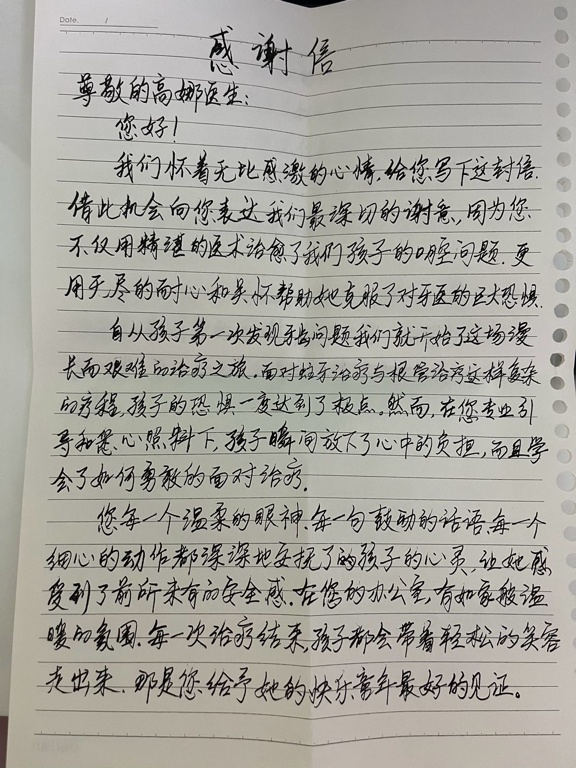 Date. /
感谢信
尊敬的高娜医生：
您好！
我们怀着无比感激的心情，给您写下这封信.
借此机会向您表达我们最深切的谢意，因为您
不仅用精湛的医术治愈了我们孩子的口腔问题.更
用无尽的耐心和关怀帮助她克服了对牙医的巨大恐惧.
自从孩子第一次发现牙齿问题我们就开始了这场漫
长而艰难的治疗之旅.面对蛀牙治疗与根管治疗这样复杂
的疗程，孩子的恐惧一度达到了极点。然而，在您专业引
导和悉心照料下，孩子瞬间放下了心中的负担，而且学
会了如何勇敢的面对治疗.
您每一个温柔的眼神.每一句鼓励的话语.每一个
细心的动作都深深地安抚了的孩子的心灵，让她感
受到了前所未有的安全感.在您的办公室，有如家般温
暖的氛围.每一次治疗结束，孩子都会带着轻松的笑容
走出来.那是您给予她的快乐童年最好的见证。